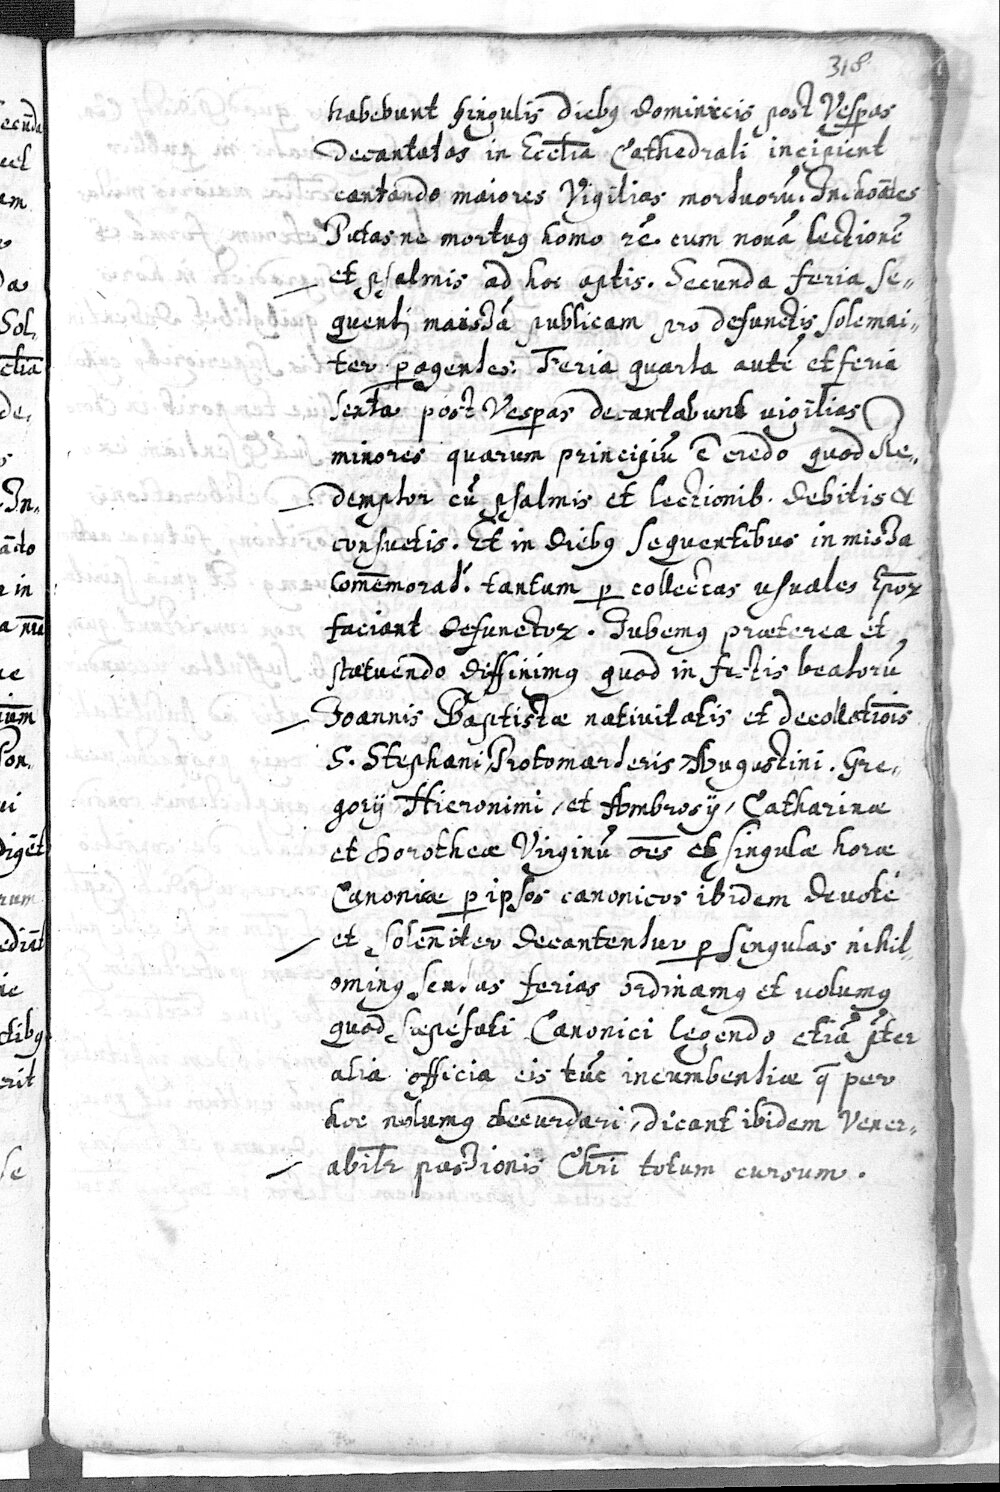 318
habebunt singulis diebq Dominicis post Vespas
Decantatas in Eccłia Cathedrali incipient
cantando maiores Vigilias mortuorũ. Inchoãtes
Putas ne mortuq homo rẽ. cum nonã lectionẽ
et psalmis ad hoc aptis. Secunda feria se-
quenti missã publicam pro defunctis solemni-
ter peragentes: Feria quarta autẽ et feria
sexta post Vespas decantabunt vigilias
minores quarum principiũ ẽ credo quod Re-
demptor cũ psalmis et lectionib. debitis &
consuetis. Et in diebq sequentibus in missa
Com̃emorać. tantum p collectas usuales Ep̃oꝝ
faciant defunctoꝝ. Iubemq præterea et
statuendo diffinimq quod in festis beatorũ
Joannis Baptistæ nativitatis et decollatiõis
S. Stephani Protomarteris, Augustini. Gre-
gorij Hieronimi, et Ambrosij, Catharinæ
et Dorotheæ Virginũ oẽs et singulæ horæ
Canonicæ p ipsos canonicos ibidem devotè
et soleñiter decantentur p singulas nihil-
ominq sextas ferias ordinamq et volumq
quod sæpéfati Canonici legendo etiã p̃ter
alia officia eis tũc incumbentiæ q̃ per
hoc nolumq decurdari, dicant ibidem Vener-
abil̃r passionis Chr̃i totum cursum.
ecũda
vel
am
da
Sol-
cłia
de-
In-
r in
ne
ui
rum
ctibq
erit
se